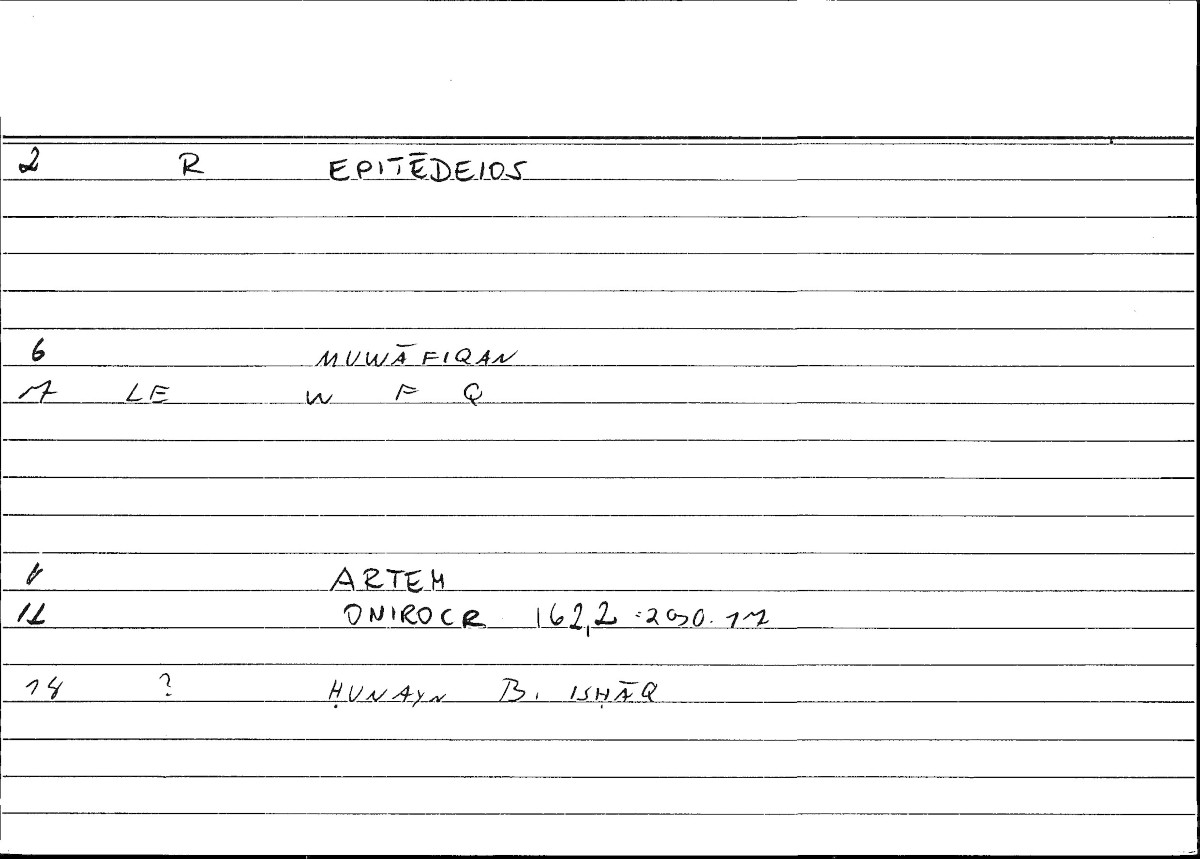 2 R EPITĒDEIOS
6 MUWĀFIQAN
7 LE W F Q
ARTEM
11 ONIROCR 162,2 :290.17
18 ? ḤUNAYN B. ISḤĀQ